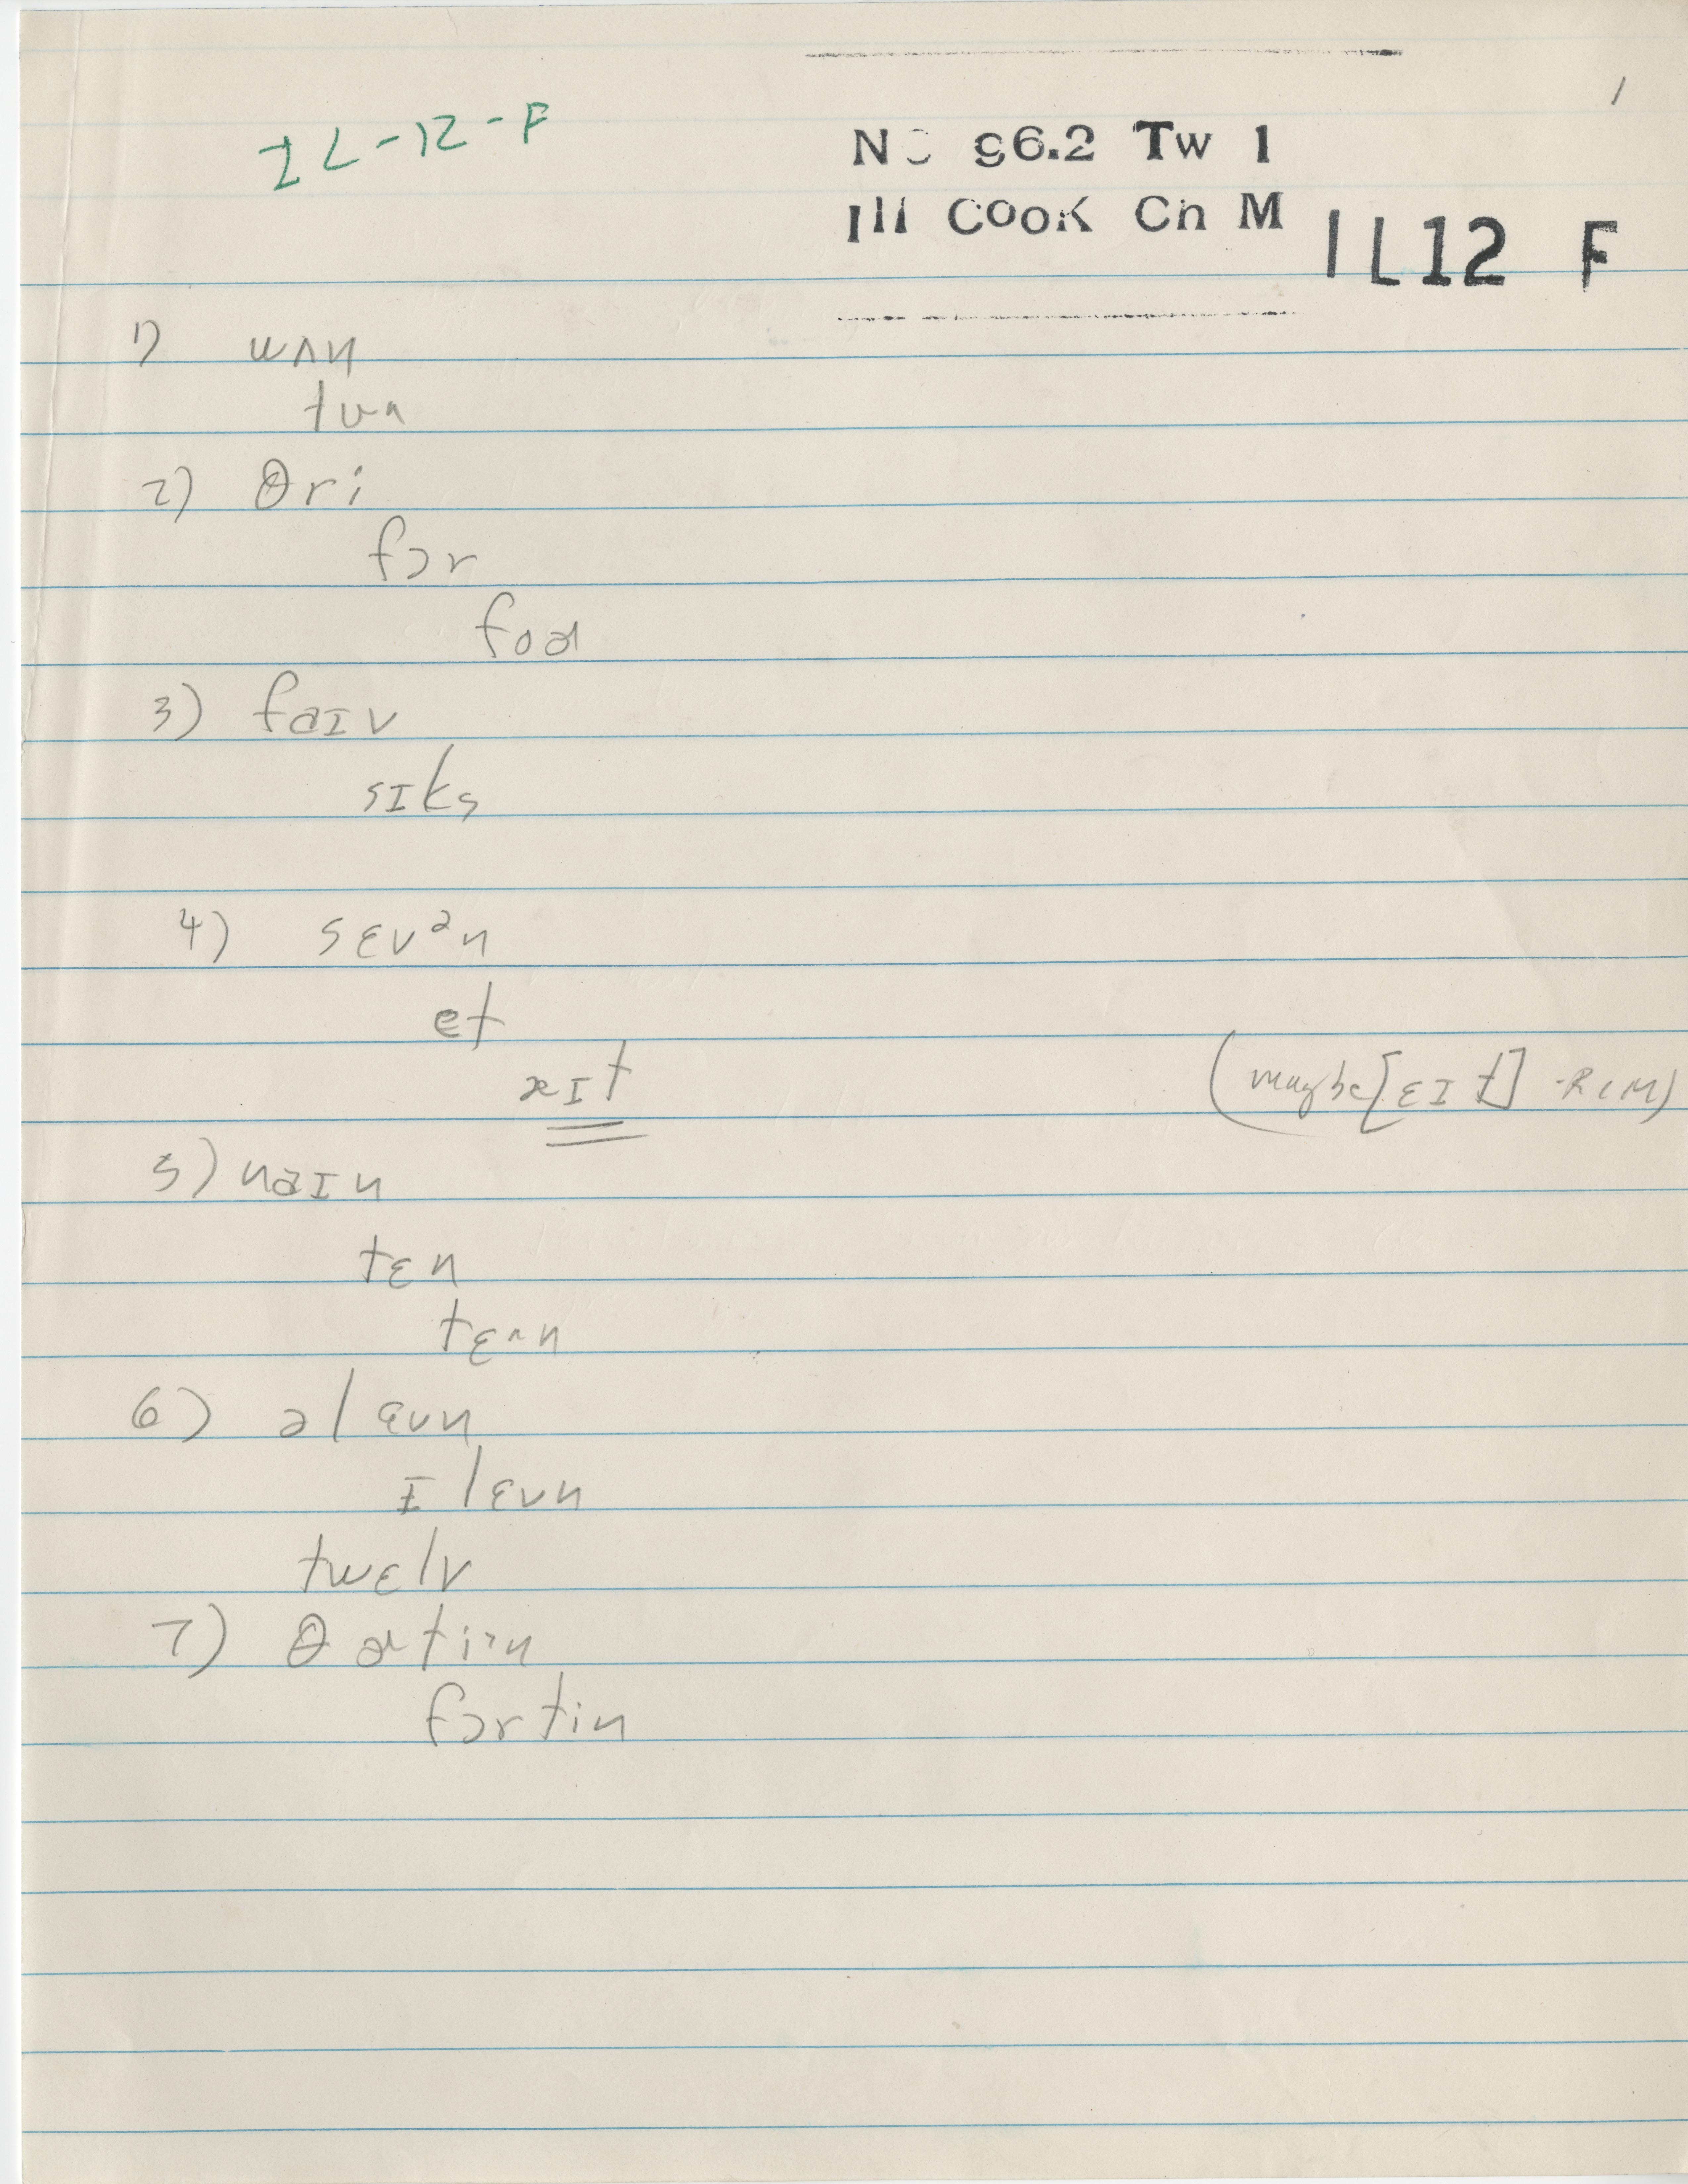 1
IL-12-F
NC 96.2 Tw 1
Ill Cook Ch M
IL12 F
1) wʌn
tuʌ
2) θri
fɔr
foɚ
3) faɪv
sɪks
4) sɛvᵊn
et
æɪt
(maybe [ɛɪt] -RIM)
5) naɪn
tɛn
tɛʌn
6) əlɛvn
ɪlɛvn
twɛlv
7) θɚtiᵊn
fɔrtin